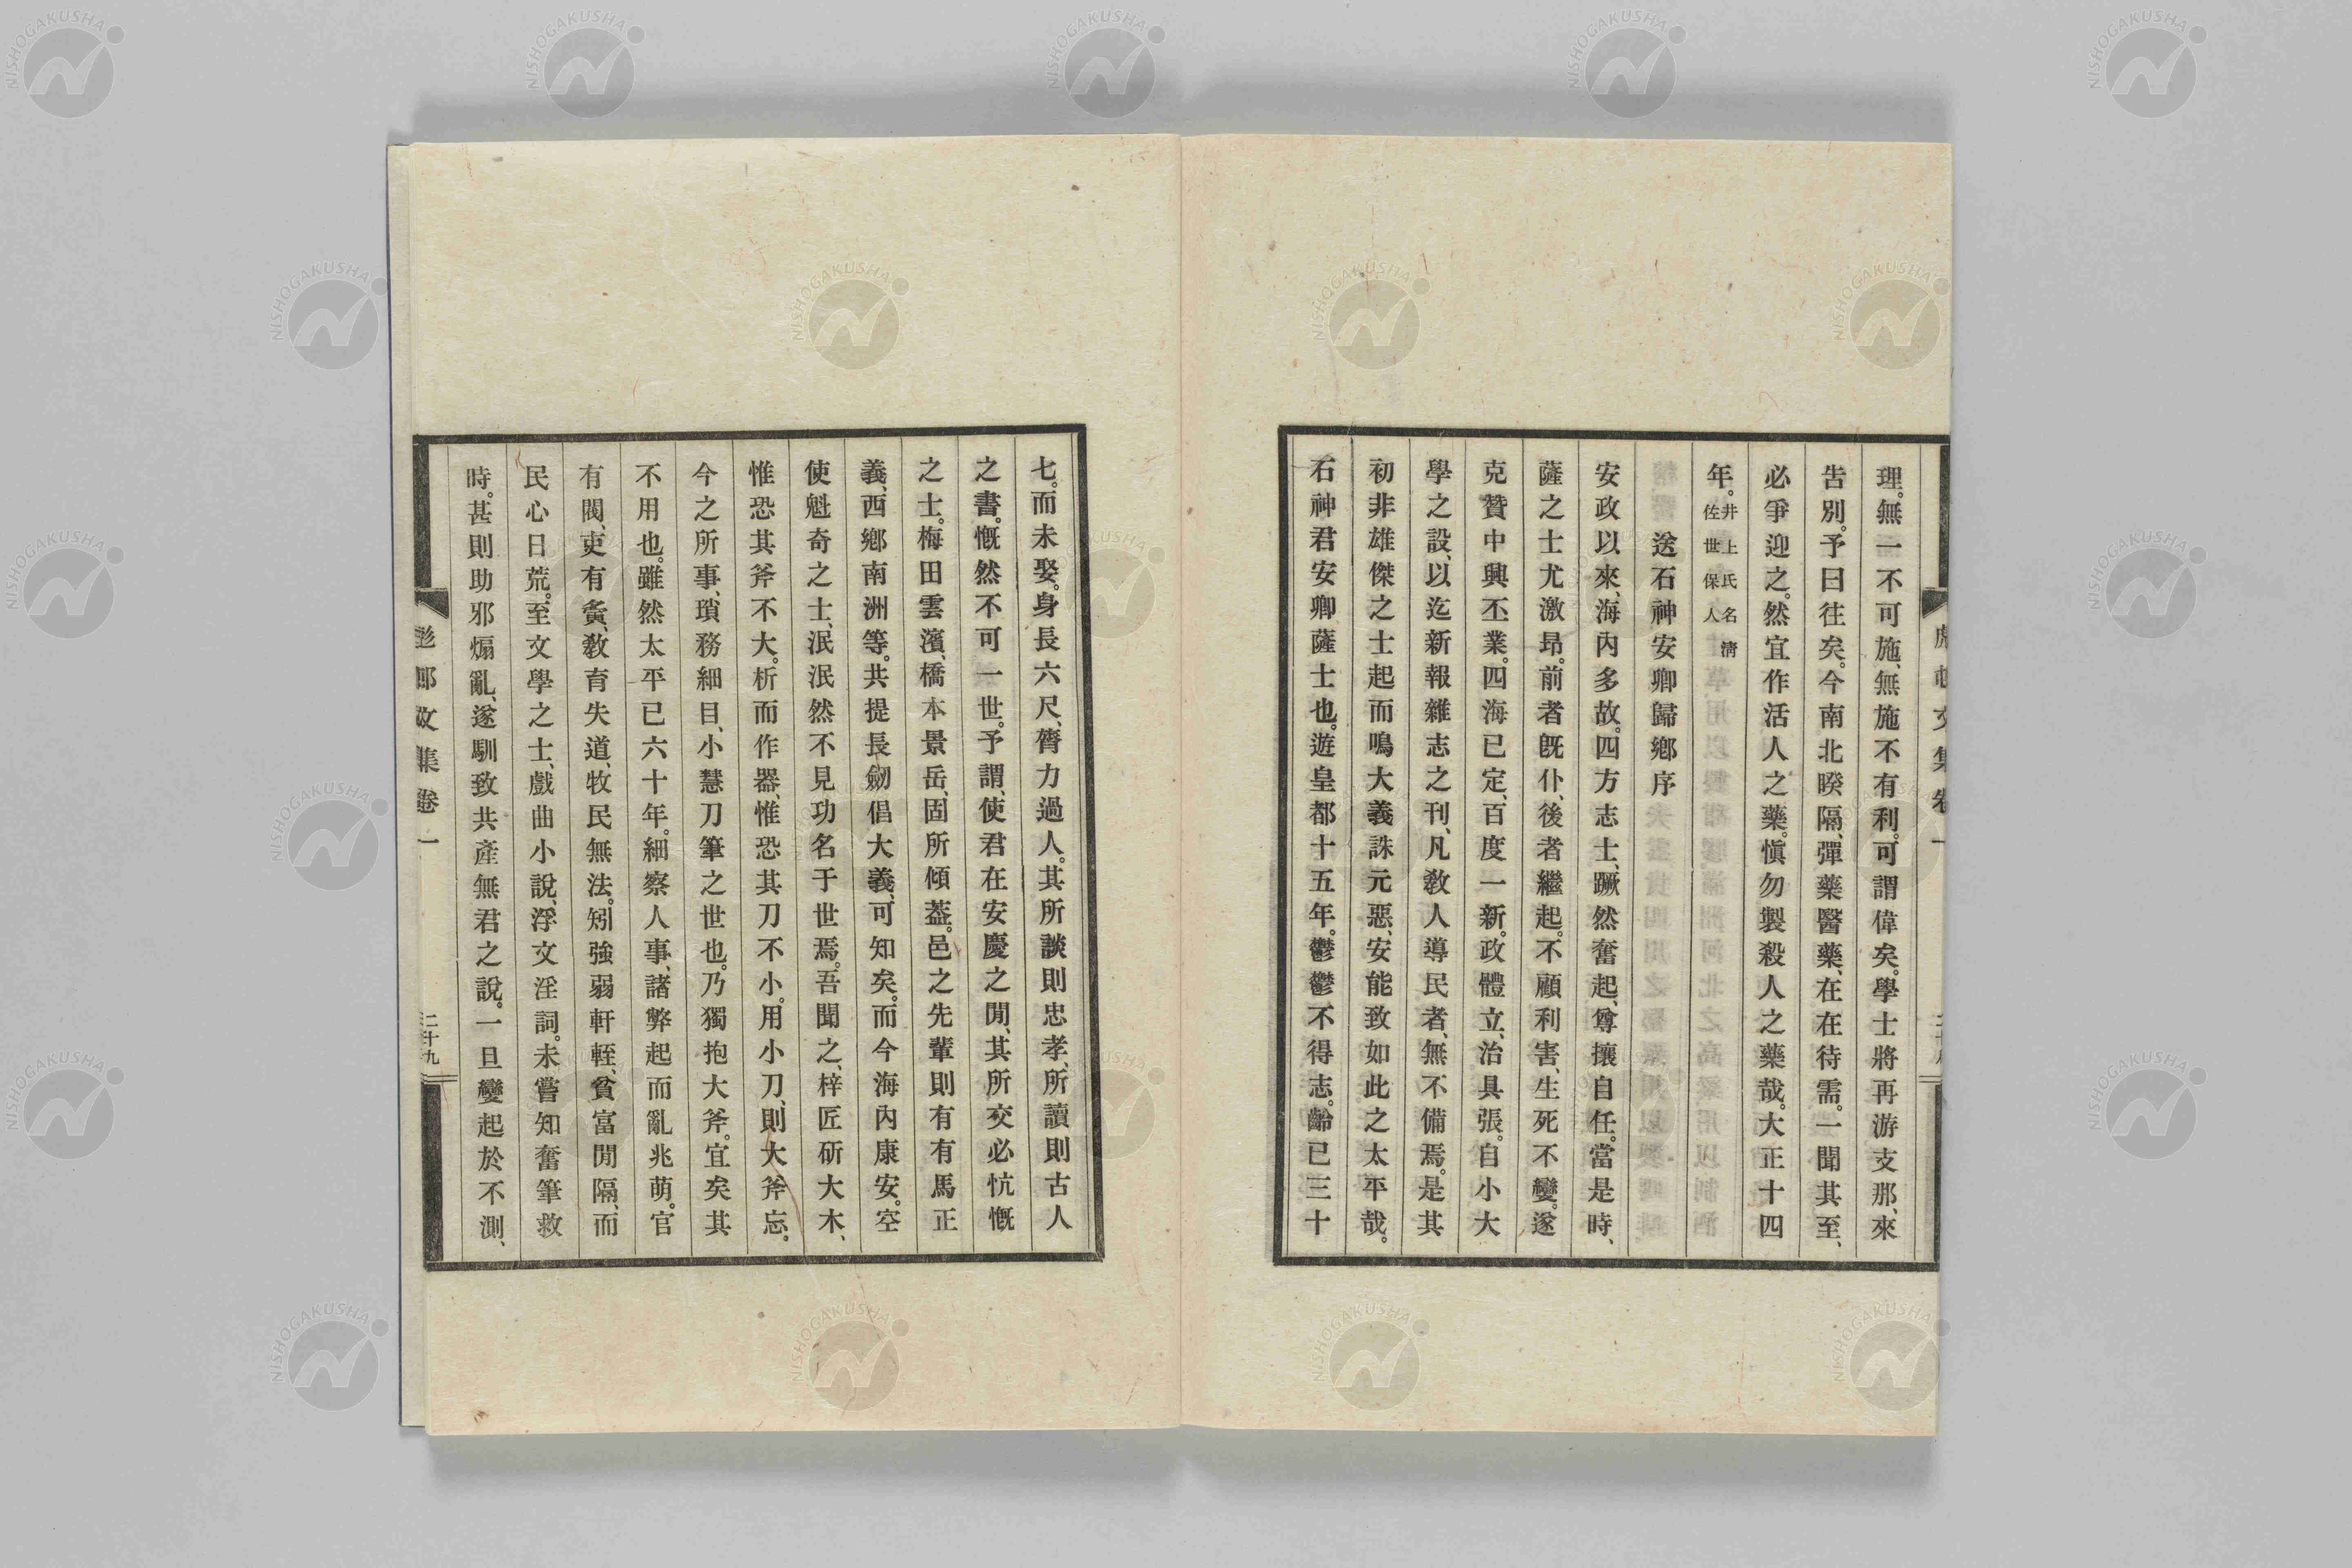 理。無一不可施、無施不有利。可謂偉矣。學士將再游支那、來
告別。予曰往矣。今南北暌隔、彈藥醫藥、在在待需。一聞其至、
必爭迎之。然宜作活人之藥。愼勿製殺人之藥哉。大正十四
年。井上氏名淸佐世保人
送石神安卿歸鄕序
安政以來、海內多故。四方志士、蹶然奮起、尊攘自任。當是時、
薩之士尤激昂。前者旣仆、後者繼起。不顧利害、生死不變。遂
克贊中興丕業。四海已定、百度一新。政體立、治具張。自小大
學之設、以迄新報雜志之刊、凡敎人導民者、無不備焉。是其
初非雄傑之士起而鳴大義誅元惡、安能致如此之太平哉。
石神君安卿薩士也。遊皇都十五年。鬱鬱不得志。齡已三十
七。而未娶。身長六尺、膂力過人。其所談則忠孝、所讀則古人
之書。慨然不可一世。予謂、使君在安慶之閒、其所交必忼慨
之士。梅田雲濱、橋本景岳、固所傾蓋。邑之先輩則有有馬正
義、西鄕南洲等。共提長劒倡大義、可知矣。而今海內康安。空
使魁奇之士、泯泯然不見功名于世焉。吾聞之、梓匠斫大木、
惟恐其斧不大。析而作器、惟恐其刀不小。用小刀、則大斧忘。
今之所事、瑣務細目、小慧刀筆之世也。乃獨抱大斧。宜矣其
不用也。雖然太平已六十年。細察人事、諸弊起而亂兆萌。官
有閥、吏有黨、敎育失道、牧民無法。矧強弱軒輊、貧富閒隔、而
民心日荒。至文學之士、戲曲小說、浮文淫詞。未嘗知奮筆救
時。甚則助邪煽亂、遂馴致共產無君之說。一旦變起於不測、
文集卷一
二十九